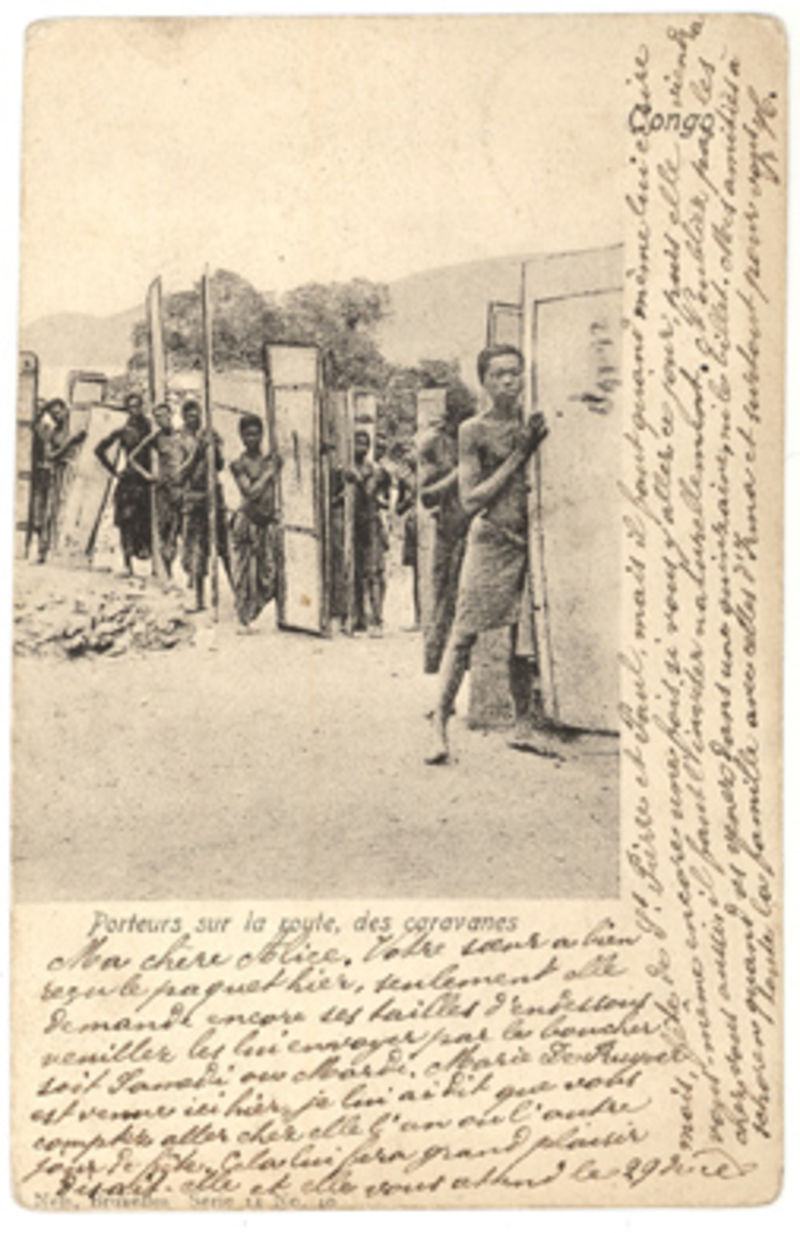 Congo
Porteurs sur la route, des caravanes
Ma chère Alice. Votre sœur a bien
reçu le paquet hier, seulement elle
demande encore ses tailles d'endessous
veuillez les lui envoyer par le boucher
soit Samedi ou Mardi. Marie De Ruyver
est venue ici hier, je lui ai dit que vous
comptez aller chez elle l'un ou l'autre
jour de fête. Cela lui fera grand plaisir
disait-elle et elle vous attend le 29 de ce
mois, fête de St Pierre et Paul, mais il faut quand même lui écrire
vous même encore une fois si vous y aller ce jour, puis elle viendra
chez vous aussi il faut l'inviter naturellement. par les
quand dans une quinzaine, Mes amitiés à
toute la famille avec celles d'Irma et surtout pour vous
Nels, Bruxelles Serie 11 No.